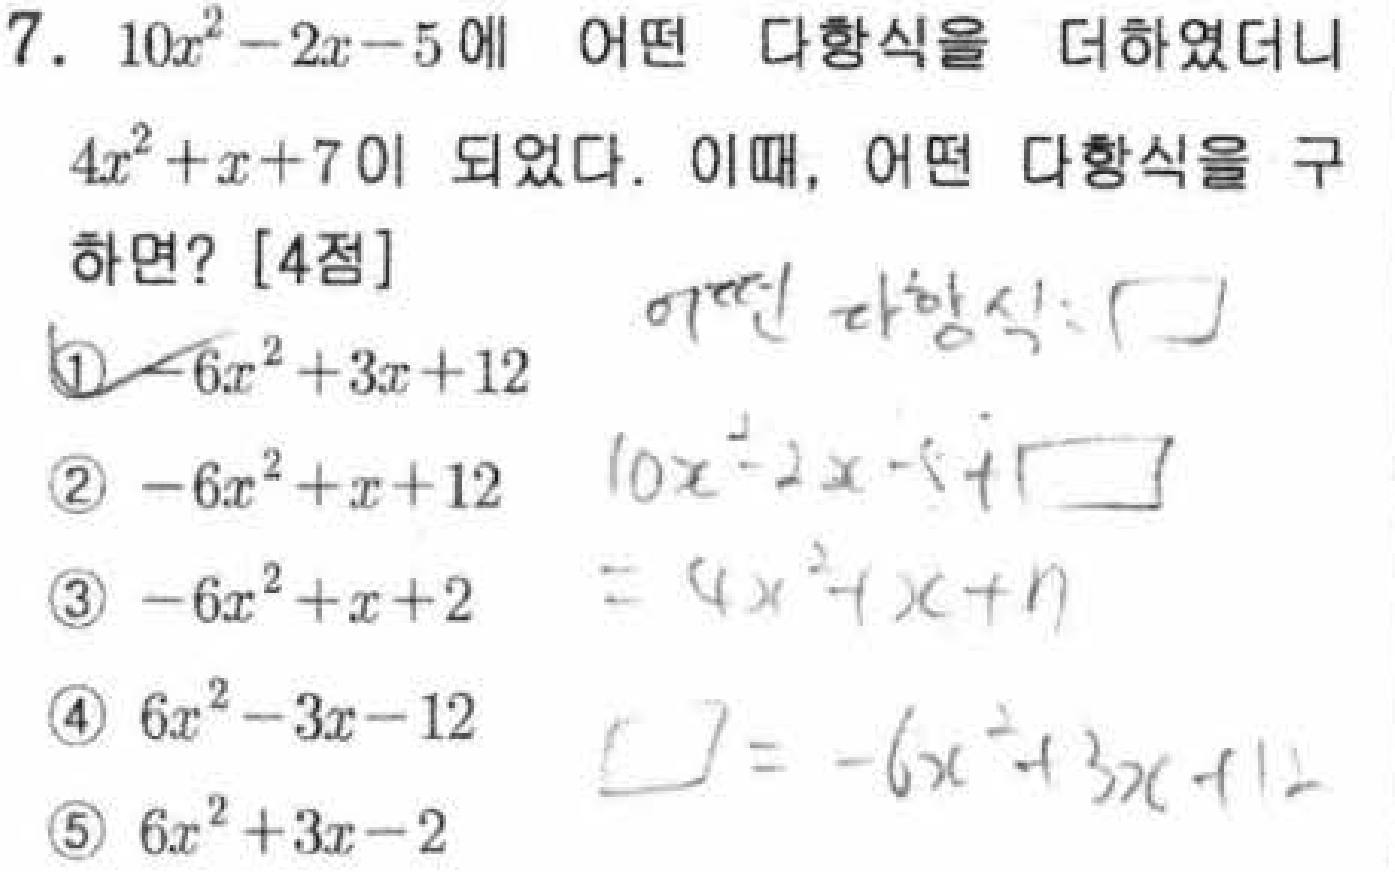 7. 10x² − 2x − 5에 어떤 다항식을 더하였더니
4x² + x + 7이 되었다. 이때, 어떤 다항식을 구
하면? [4점]
① −6x² + 3x + 12
② −6x² + x + 12
③ −6x² + x + 2
④ 6x² − 3x − 12
⑤ 6x² + 3x − 2
어떤 다항식: □
10x² - 2x - 5 + □
= 4x² + x + 7
□ = -6x² + 3x + 12